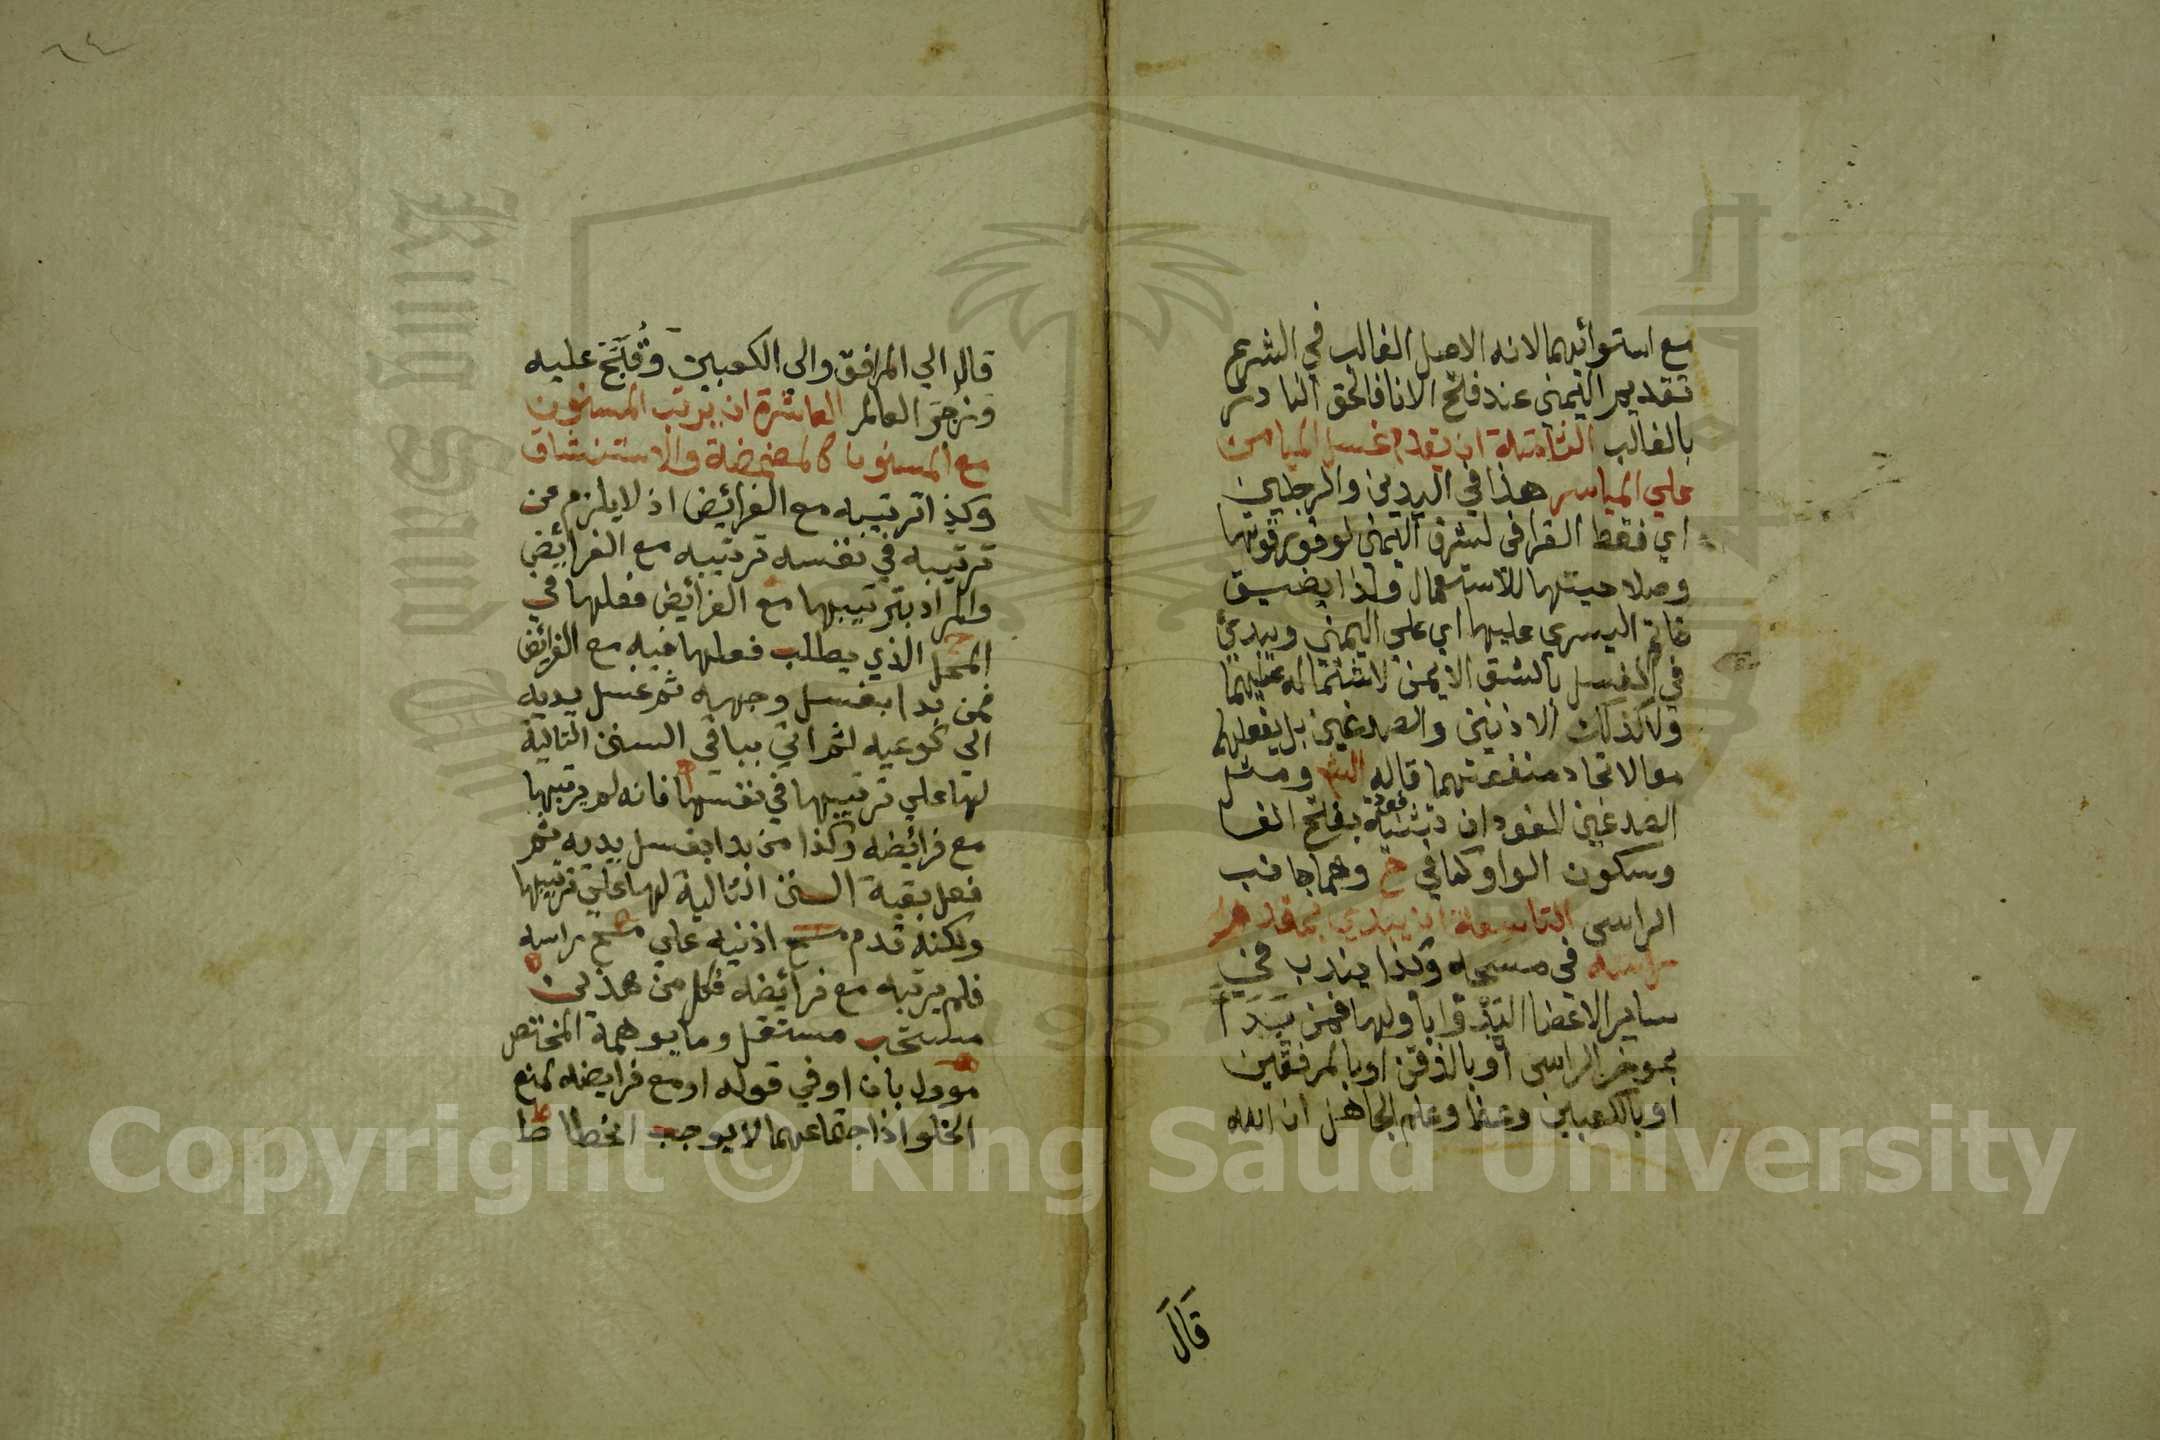 مع استوائهما لانه الاصل الغالب في الشرع
تقديم اليمنى عند فتح الانا فالحق النادر
بالغالب الثامنة ان يقدم غسل الميامن
علي المياسر هذا في اليدين والرجلين
اي فقط القرافي لشرف اليمنى لوفور قوتها
وصلاحيتها للاستعمال ولذا يضيق
خاتم اليسري عليها اي علي اليمنى ويبدئ
في الغسل بالشق الايمن لاشتماله عليهما
ولا كذلك الاذنين والصدغين بل يفعلهما
معا لاتحاد منفعتهما قاله الش ومثل
الصدغين الفودان تثنية فود بفتح الفا
وسكون الواو كما في خ وهما جانب
الراس التاسعة ان يبدي بمقدم
راسه في مسحه وكذا يندب في
ساير الاعضا البدؤ باولها فمن بدا
بموخر الراس او بالذقن او بالمرفقين
او بالكعبين وعظ وعلم الجاهل ان الله
قَالَ
٦٤
قال الي المرافق والى الكعبين وقُبِّحَ عليه
وزجر العالم العاشرة ان يرتب المسنون
مع المسنون كالمضمضة والاستنشاق
وكذا ترتيبه مع الفرائض اذ لا يلزم من
ترتيبه في نفسه ترتيبه مع الفرائض
والمراد بترتيبها مع الفرائض فعلها في
المحل الذي يطلب فعلها فيه مع الفرائض
فمن بدا بغسل وجهه ثم غسل يديه
الي كوعيه ثم اتي بباقي السنن التالية
لها علي ترتيبها في نفسها فانه لم يرتبها
مع فرائضه وكذا من بدا بغسل يديه ثم
فعل بقية السنن التالية لها علي ترتيبها
ولكنه قدم مسح اذنيه علي مسح راسه
فلم يرتبه مع فرائضه فكل من هذين
مستحب مستقل وما يوهمه المختصر
موول بان او في قوله او مع فرايضه لمنع
الخلو اذ اجتماعهما لا يوجب انحطاط
King Saud University
Copyright © King Saud University